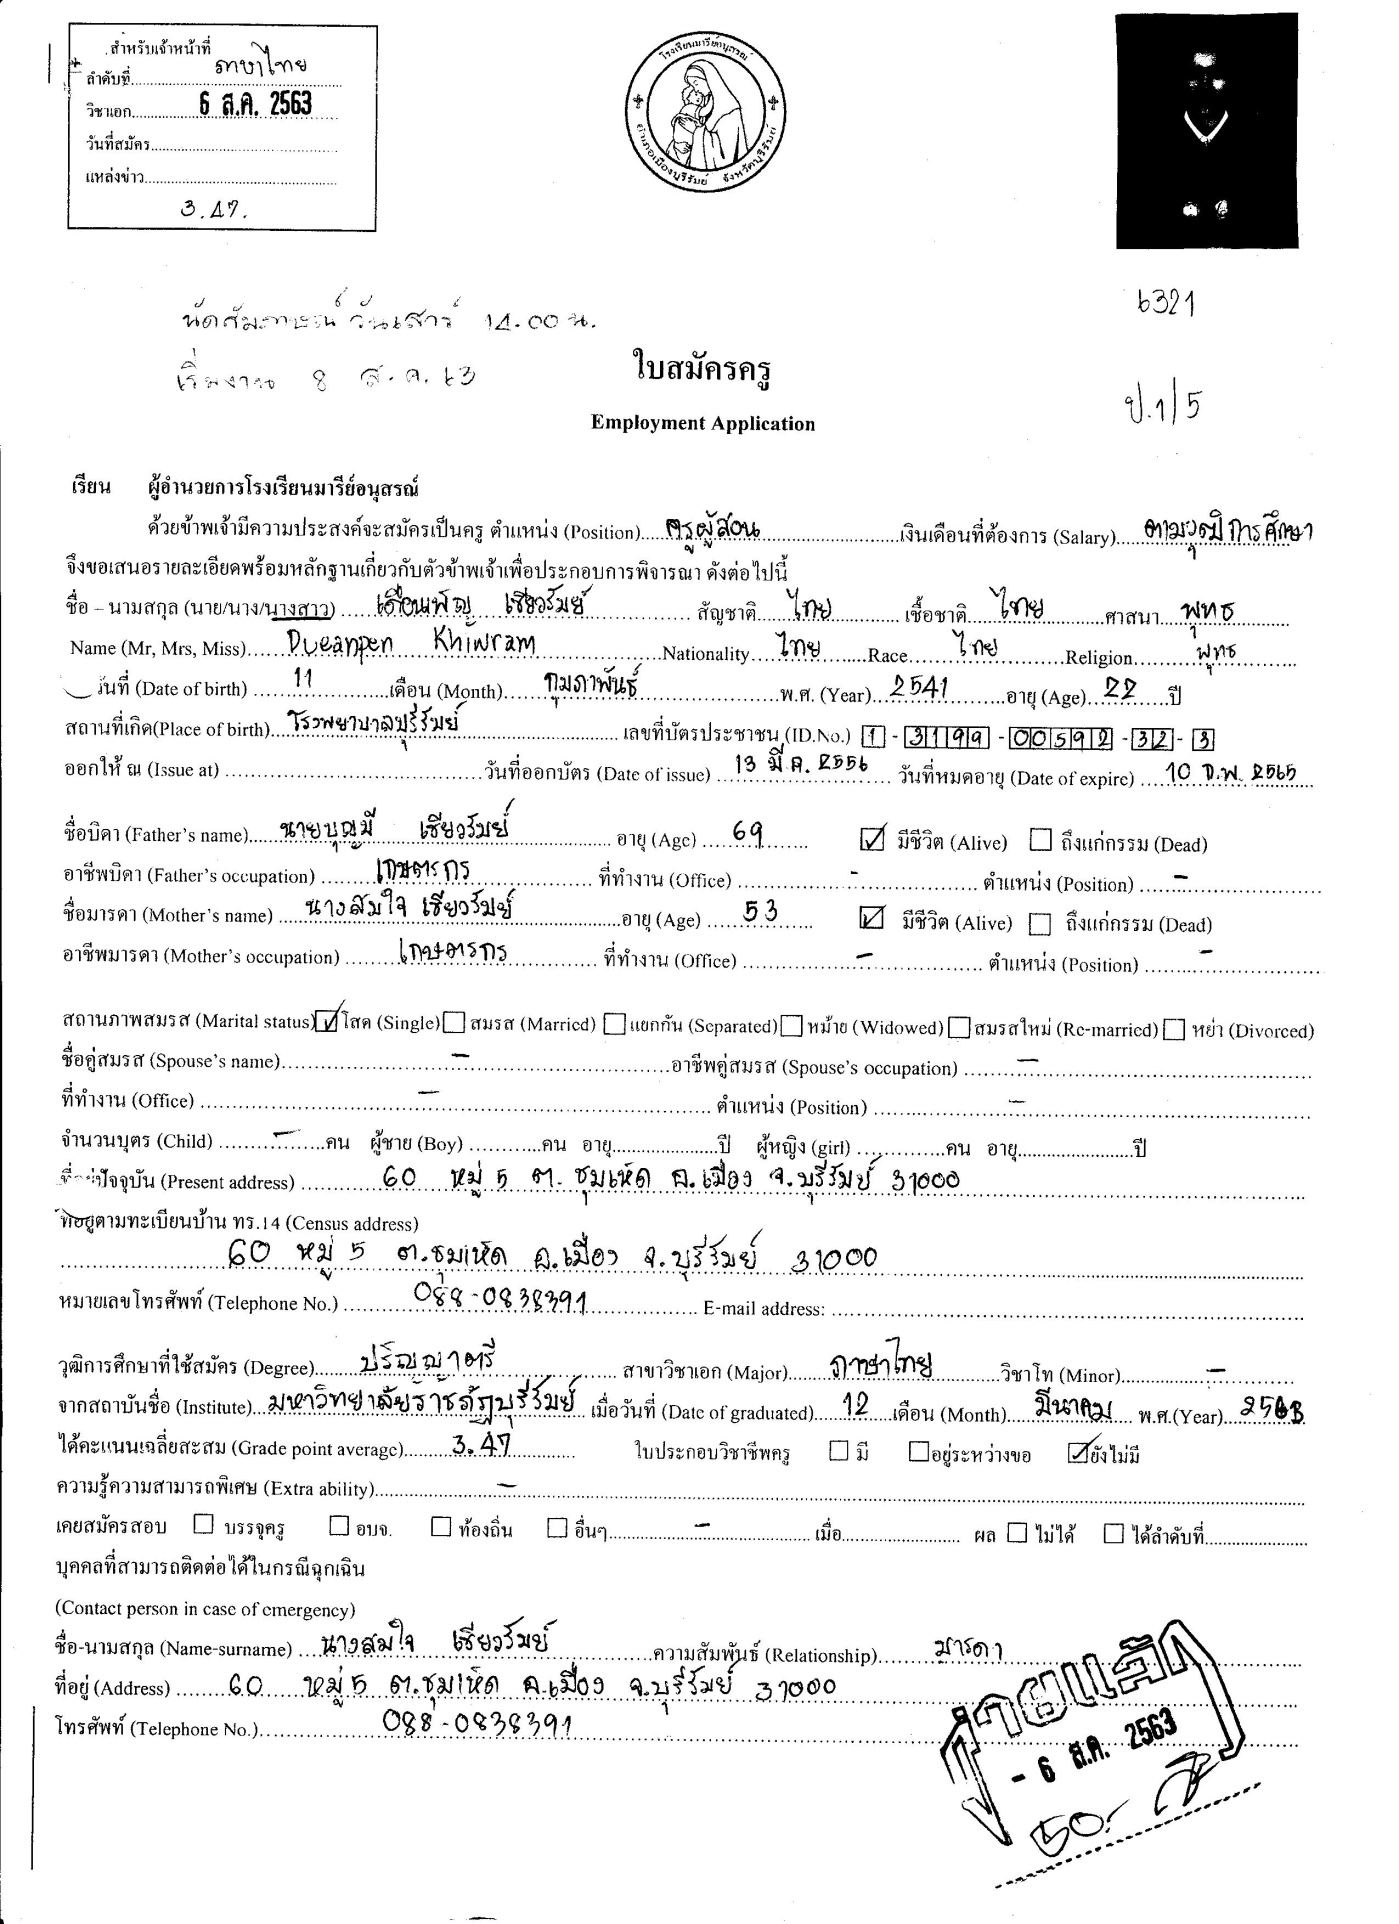 สำหรับเจ้าหน้าที่
ลำดับที่ ภาษาไทย
วิชาเอก 6 ส.ค. 2563
วันที่สมัคร
แหล่งข่าว
3.47.
โรงเรียนมารีย์อนุสรณ์
อำเภอเมืองบุรีรัมย์ จังหวัดบุรีรัมย์
6321
นัดสัมภาษณ์ วันเสาร์ 14.00 น.
เริ่มงาน 8 ส.ค. 63
ป.1/5
ใบสมัครครู
Employment Application
เรียน ผู้อำนวยการโรงเรียนมารีย์อนุสรณ์
ด้วยข้าพเจ้ามีความประสงค์จะสมัครเป็นครู ตำแหน่ง (Position) ครูผู้สอน เงินเดือนที่ต้องการ (Salary) ตามวุฒิการศึกษา
จึงขอเสนอรายละเอียดพร้อมหลักฐานเกี่ยวกับตัวข้าพเจ้าเพื่อประกอบการพิจารณา ดังต่อไปนี้
ชื่อ – นามสกุล (นาย/นาง/นางสาว) เดือนเพ็ญ เขียวรัมย์ สัญชาติ ไทย เชื้อชาติ ไทย ศาสนา พุทธ
Name (Mr, Mrs, Miss) Dueanpen Khiwram Nationality ไทย Race ไทย Religion พุทธ
วันที่ (Date of birth) 11 เดือน (Month) กุมภาพันธ์ พ.ศ. (Year) 2541 อายุ (Age) 22 ปี
สถานที่เกิด(Place of birth) โรงพยาบาลบุรีรัมย์ เลขที่บัตรประชาชน (ID.No.) 1 - 3199 - 00592 - 32 - 3
ออกให้ ณ (Issue at) วันที่ออกบัตร (Date of issue) 13 มี.ค. 2556 วันที่หมดอายุ (Date of expire) 10 ก.พ. 2565
ชื่อบิดา (Father's name) นายบุญมี เขียวรัมย์ อายุ (Age) 69 มีชีวิต (Alive) ถึงแก่กรรม (Dead)
อาชีพบิดา (Father's occupation) เกษตรกร ที่ทำงาน (Office) - ตำแหน่ง (Position) -
ชื่อมารดา (Mother's name) นางสมใจ เขียวรัมย์ อายุ (Age) 53 มีชีวิต (Alive) ถึงแก่กรรม (Dead)
อาชีพมารดา (Mother's occupation) เกษตรกร ที่ทำงาน (Office) - ตำแหน่ง (Position) -
สถานภาพสมรส (Marital status) โสด (Single) สมรส (Married) แยกกัน (Separated) หม้าย (Widowed) สมรสใหม่ (Re-married) หย่า (Divorced)
ชื่อคู่สมรส (Spouse's name) - อาชีพคู่สมรส (Spouse's occupation) -
ที่ทำงาน (Office) - ตำแหน่ง (Position) -
จำนวนบุตร (Child) - คน ผู้ชาย (Boy) คน อายุ ปี ผู้หญิง (girl) คน อายุ ปี
ที่อยู่ปัจจุบัน (Present address) 60 หมู่ 5 ต. ชุมเห็ด อ.เมือง จ.บุรีรัมย์ 31000
ที่อยู่ตามทะเบียนบ้าน ทร.14 (Census address)
60 หมู่ 5 ต.ชุมเห็ด อ.เมือง จ.บุรีรัมย์ 31000
หมายเลขโทรศัพท์ (Telephone No.) 088-0838391 E-mail address:
วุฒิการศึกษาที่ใช้สมัคร (Degree) ปริญญาตรี สาขาวิชาเอก (Major) ภาษาไทย วิชาโท (Minor) -
จากสถาบันชื่อ (Institute) มหาวิทยาลัยราชภัฏบุรีรัมย์ เมื่อวันที่ (Date of graduated) 12 เดือน (Month) มีนาคม พ.ศ.(Year) 2563
ได้คะแนนเฉลี่ยสะสม (Grade point average) 3.47 ใบประกอบวิชาชีพครู มี อยู่ระหว่างขอ ยังไม่มี
ความรู้ความสามารถพิเศษ (Extra ability) -
เคยสมัครสอบ บรรจุครู อบจ. ท้องถิ่น อื่นๆ - เมื่อ ผล ไม่ได้ ได้ลำดับที่
บุคคลที่สามารถติดต่อได้ในกรณีฉุกเฉิน
(Contact person in case of emergency)
ชื่อ-นามสกุล (Name-surname) นางสมใจ เขียวรัมย์ ความสัมพันธ์ (Relationship) มารดา
ที่อยู่ (Address) 60 หมู่ 5 ต.ชุมเห็ด อ.เมือง จ.บุรีรัมย์ 31000
โทรศัพท์ (Telephone No.) 088-0838391
จ่ายแล้ว
- 6 ส.ค. 2563
50.-